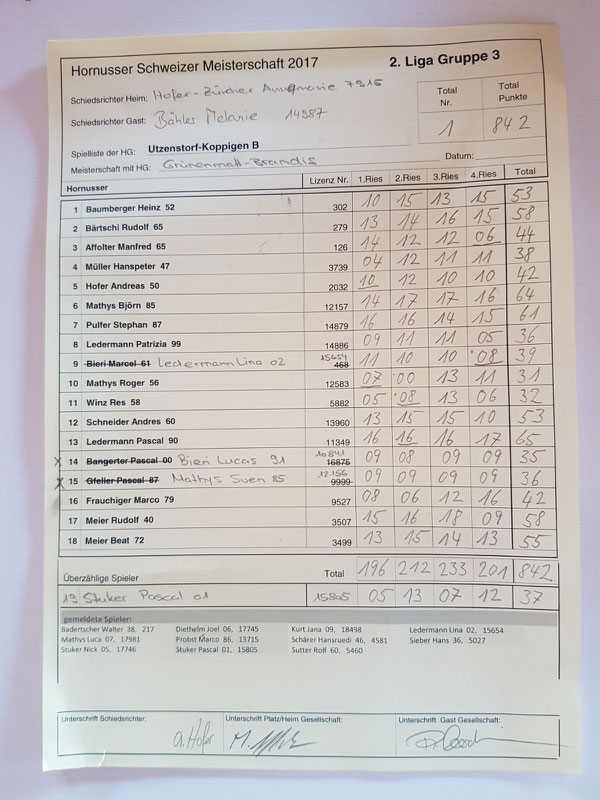 Hornusser Schweizer Meisterschaft 2017 2. Liga Gruppe 3
Schiedsrichter Heim: Hofer-Zürcher Annemarie 7915
Total Nr. Total Punkte
Schiedsrichter Gast: Bähler Melanie 14987
1 842
Spielliste der HG: Utzenstorf-Koppigen B
Meisterschaft mit HG: Grünenmatt-Brandis Datum:
Hornusser Lizenz Nr. 1.Ries 2.Ries 3.Ries 4.Ries Total
1 Baumberger Heinz 52 302 10 15 13 15 53
2 Bärtschi Rudolf 65 279 13 14 16 15 58
3 Affolter Manfred 65 126 14 12 12 06 44
4 Müller Hanspeter 47 3739 04 12 11 11 38
5 Hofer Andreas 50 2032 10 12 10 10 42
6 Mathys Björn 85 12157 14 17 17 16 64
7 Pulfer Stephan 87 14879 16 16 14 15 61
8 Ledermann Patrizia 99 14886 09 11 11 05 36
9 Bieri Marcel 61 Ledermann Lina 02 15654 468 11 10 10 08 39
10 Mathys Roger 56 12583 07 00 13 11 31
11 Winz Res 58 5882 05 08 13 06 32
12 Schneider Andres 60 13960 13 15 15 10 53
13 Ledermann Pascal 90 11349 16 16 16 17 65
x 14 Bangerter Pascal 00 Bieri Lucas 91 10841 16875 09 08 09 09 35
x 15 Gfeller Pascal 87 Mathys Suen 85 12156 9999 09 09 09 09 36
16 Frauchiger Marco 79 9527 08 06 12 16 42
17 Meier Rudolf 40 3507 15 16 18 09 58
18 Meier Beat 72 3499 13 15 14 13 55
Überzählige Spieler Total 196 212 233 201 842
19 Stuker Pascal 01 15805 05 13 07 12 37
gemeldete Spieler:
Badertscher Walter 38, 217 Diethelm Joel 06, 17745 Kurt Jana 09, 18498 Ledermann Lina 02, 15654
Mathys Luca 07, 17981 Probst Marco 86, 13715 Schärer Hansruedi 46, 4581 Sieber Hans 36, 5027
Stuker Nick 05, 17746 Stuker Pascal 01, 15805 Sutter Rolf 60, 5460
Unterschrift Schiedsrichter: Unterschrift Platz/Heim Gesellschaft: Unterschrift Gast Gesellschaft:
a. Hofer